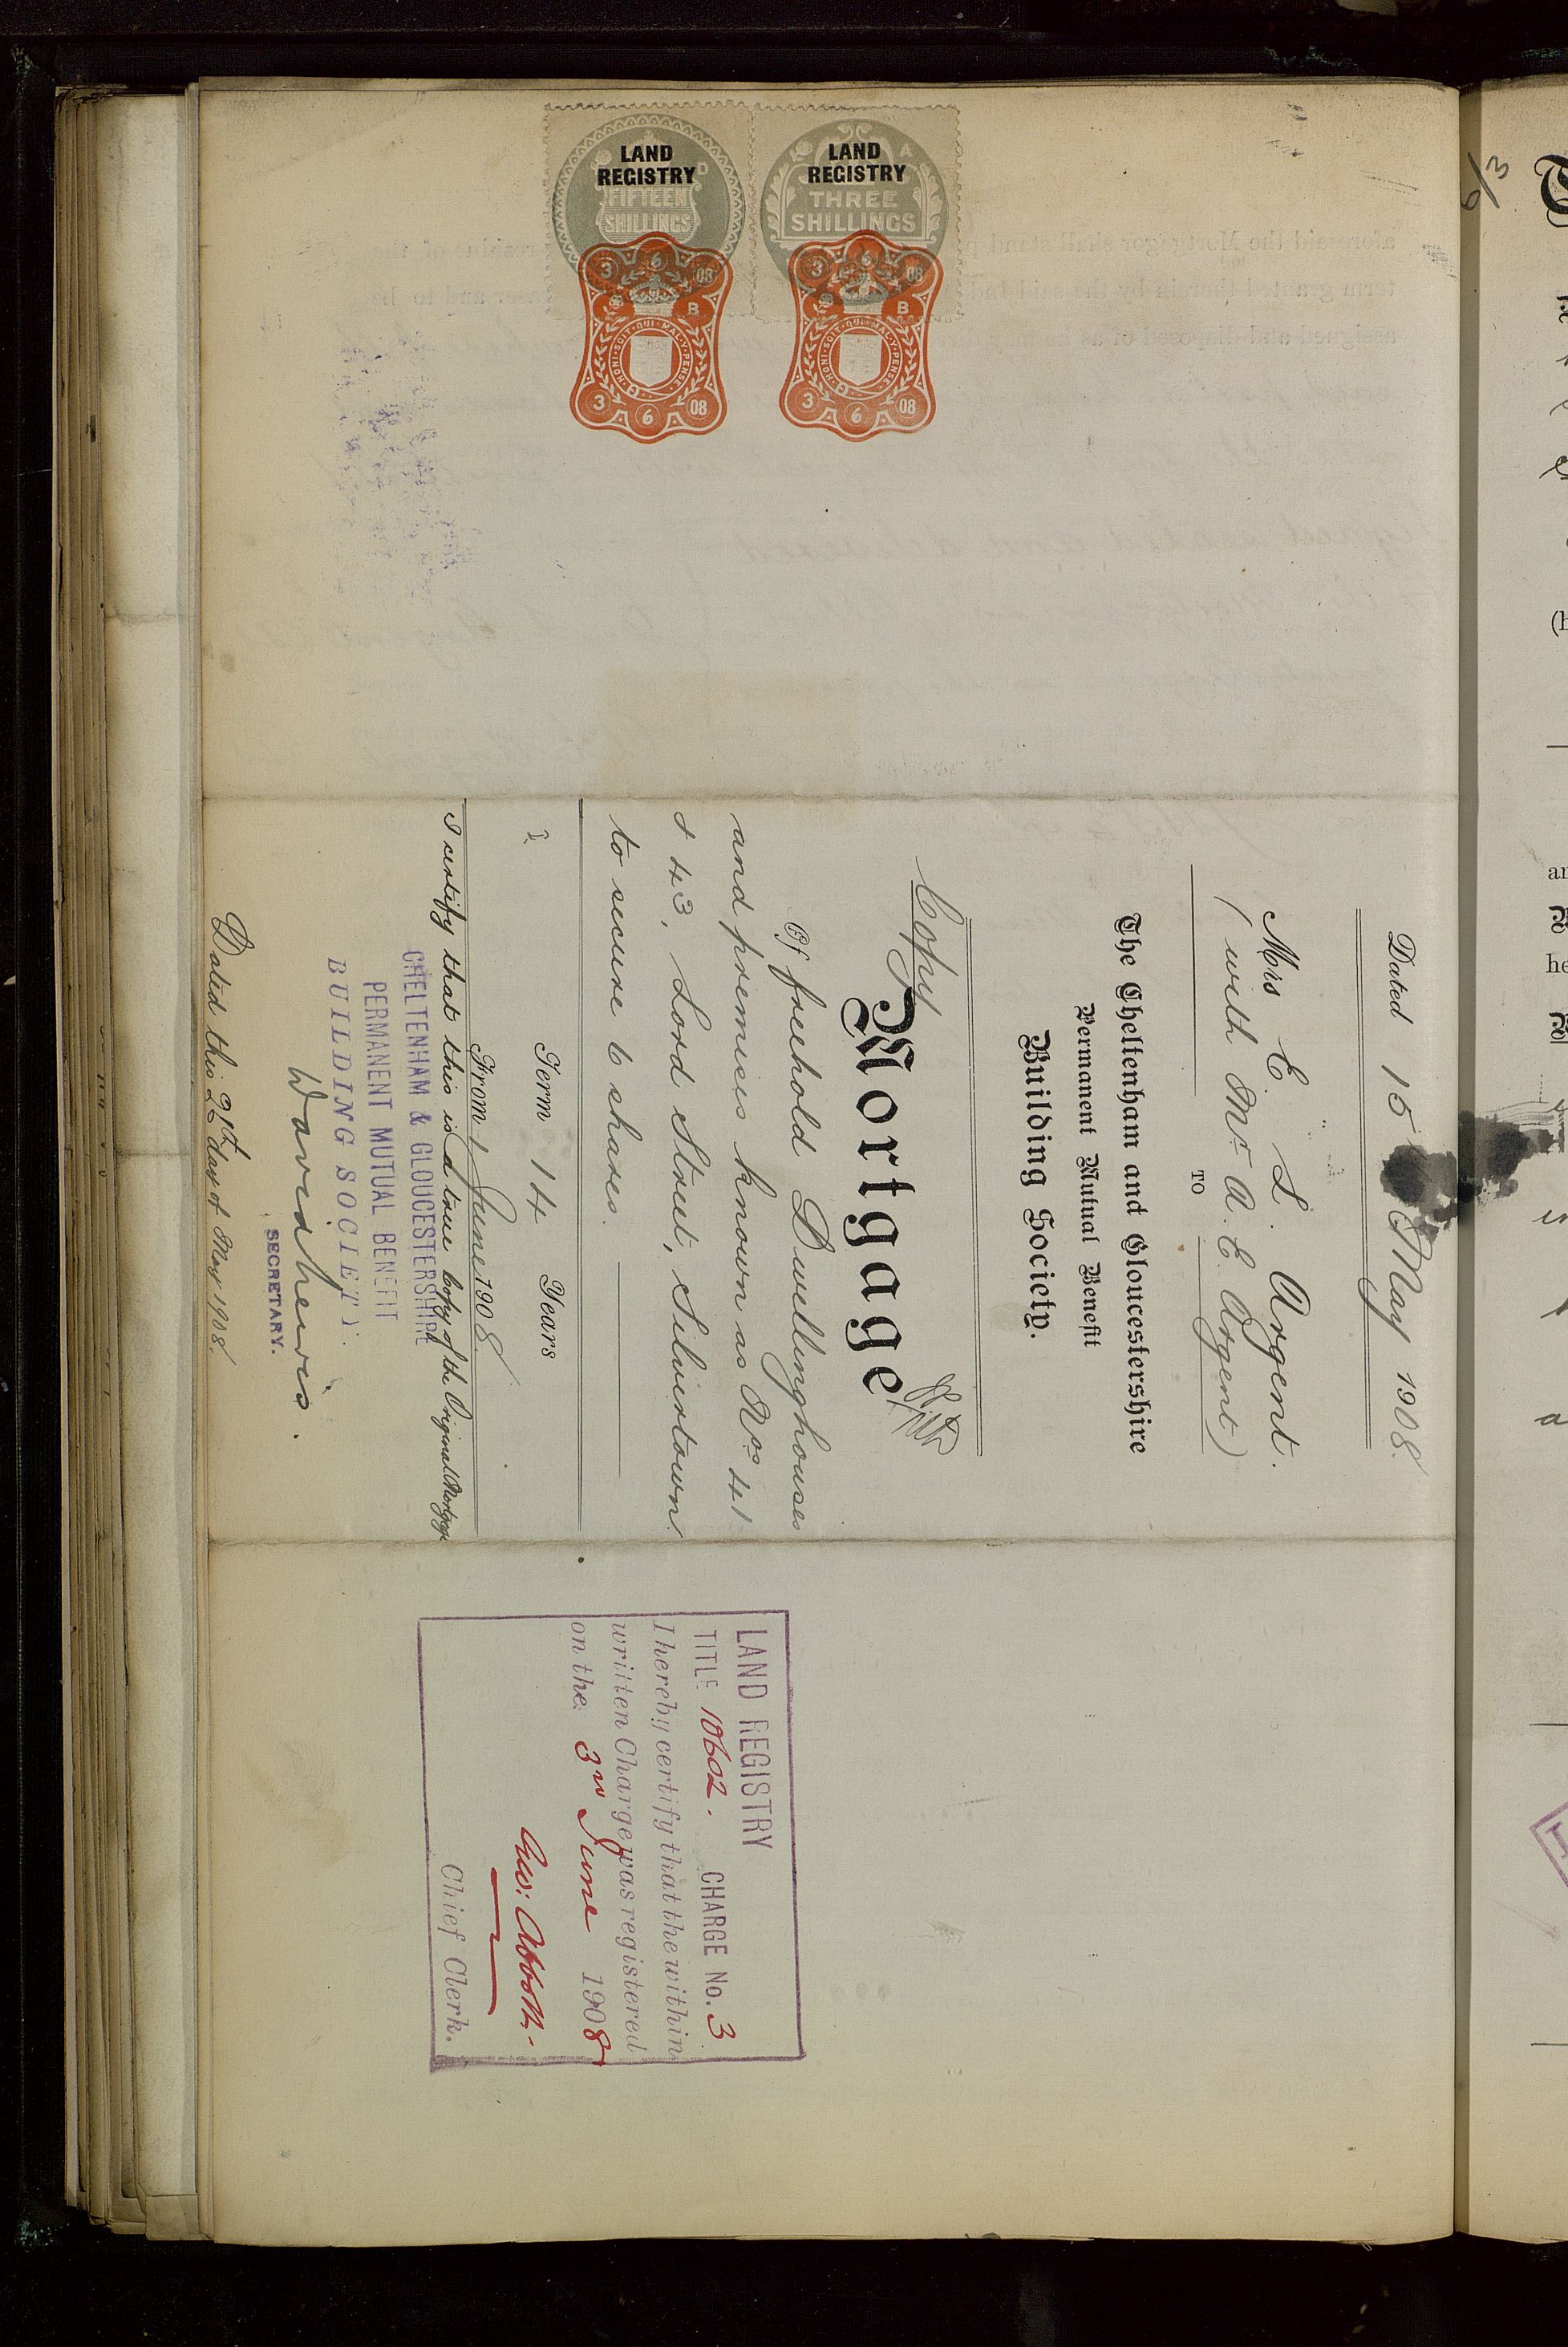 LAND
REGISTRY
FIFTEEN
SHILLINGS
LAND
REGISTRY
THREE
SHILLINGS
3 6 08
B
HONI · SOIT · QUI · MAL · Y · PENSE
3 6 08
3 6 08
B
HONI · SOIT · QUI · MAL · Y · PENSE
3 6 08
Dated 15 May 1908
Mrs E. L. Argent.
(with Mr. A. E. Argent)
TO
The Cheltenham and Gloucestershire
Permanent Mutual Benefit
Building Society.
Copy
Mortgage
Of freehold Dwellinghouses
and premises known as Nos. 41
& 43, Lord Street, Silvertown
to secure 6 shares.
Term 14 Years
From 1 June 1908
I certify that this is a true copy of the Original Mortgage
CHELTENHAM & GLOUCESTERSHIRE
PERMANENT MUTUAL BENEFIT
BUILDING SOCIETY.
SECRETARY.
Dated this day of May 1908.
LAND REGISTRY
TITLE 18602. CHARGE No. 3
I hereby certify that the within
written Charge was registered
on the 3rd June 1908
Geo: Abbott.
Chief Clerk.